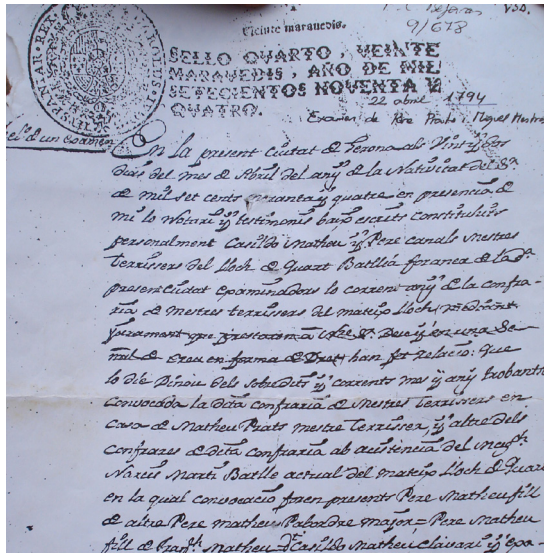 9/678
Veinte maravedis.
SELLO QVARTO, VEINTE
MARAVEDIS, AÑO DE MIL
SETECIENTOS NOVENTA Y
QVATRO.
22 abril 1794
Examen de Pere Prats i Miquel Mestre
de un examen
En la present Ciutat de Gerona als Vint y dos
dias del mes de Abril del any de la Nativitat del Sr.
de mil set cents noranta y quatre en presencia de
mi lo Notari y testimonis baix escrits constituhits
personalment Casildo Matheu y Pere Canals Mestres
Terrissers del lloch de Quart Batllia foranea de la dt.
present Ciutat examinadors lo corrent any de la confra-
ria de Mestres terrissers del mateix lloch, medicant
jurament que prestaren a Ntre Sr. Deu y de una Se-
ñal de Creu en forma de Dret, han fet relacio: Que
lo die Dinou dels sobredits y corrents mes y any trobantse
convocada la dita confraria de Mestres Terrissers en
Casa de Matheu Prats mestre Terrisser, y altre dels
confrares de dita confraria ab assistencia del
Narcis Marti Batlle actual del mateix lloch de Quart
en la qual convocacio foren presents Pere Matheu fill
de altre Pere Matheu Pabordre major = Pere Matheu
fill de Matheu = Casildo Matheu clavari y exa-